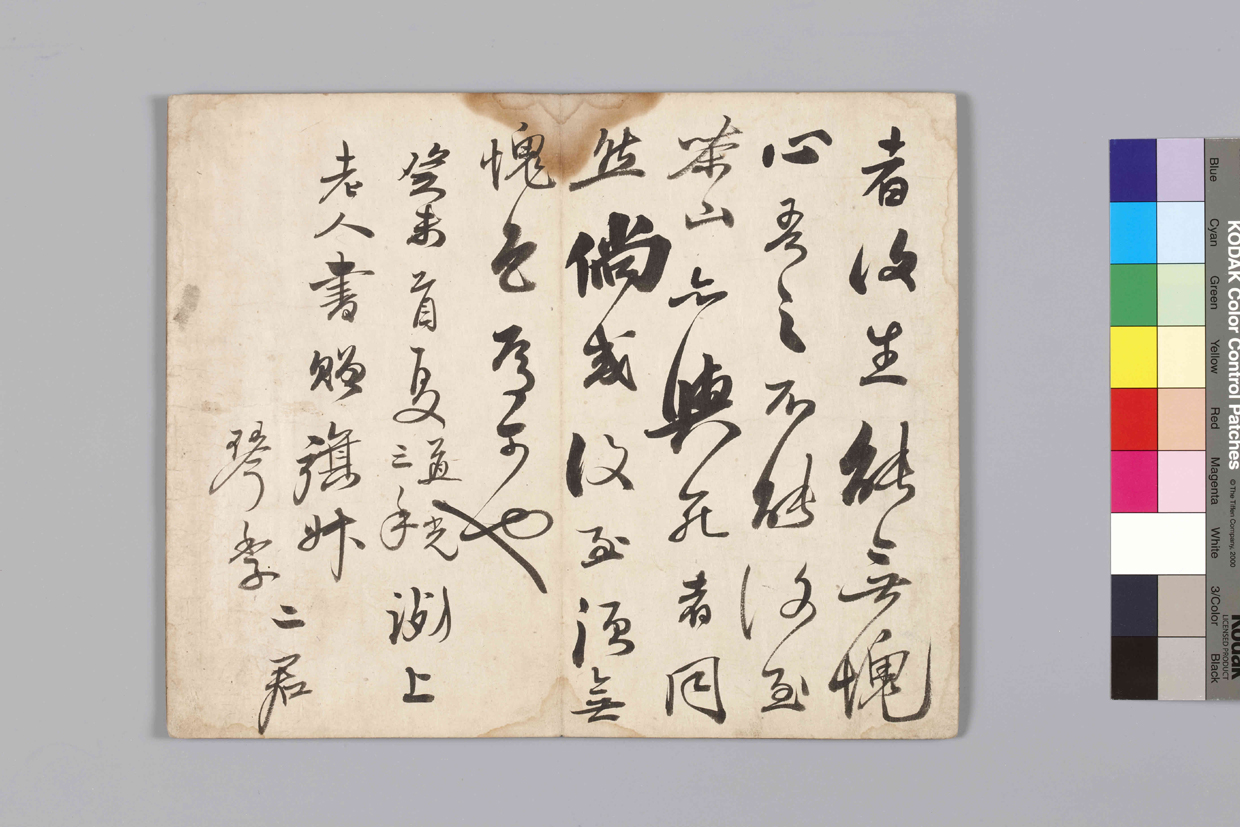 者後生能無愧
心吾之不能復至
茶山亦與死者同
然倘或後至須無
愧色爲可也
癸未首夏三道手光洌上
老人書贈旗叔
琴季二君
Blue
Cyan
Green
Yellow
Red
Magenta
White
3/Color
Black
KODAK Color Control Patches
© The Tiffen Company, 2000
Kodak
LICENSED PRODUCT